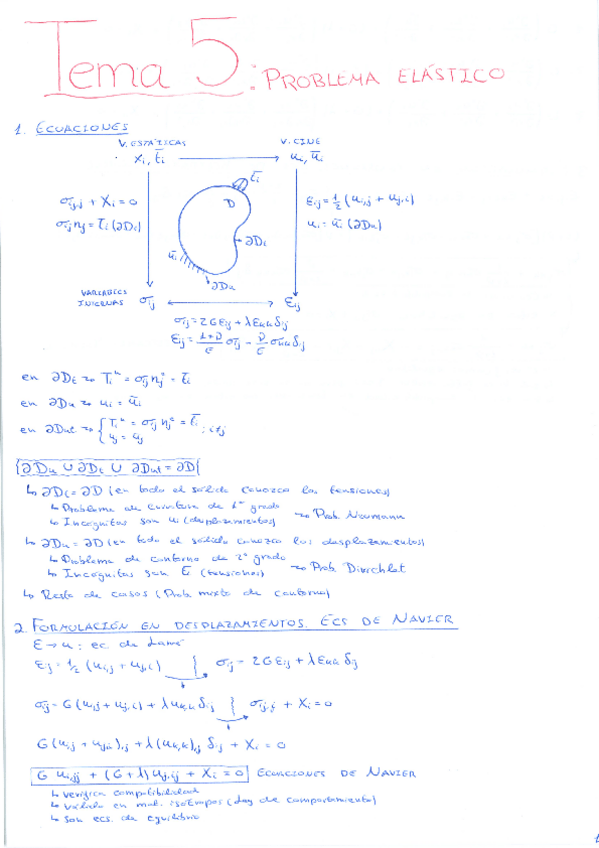 Tema 5: PROBLEMA ELÁSTICO
1. ECUACIONES
V. ESTÁTICAS
V. CINE
Xi, t̄i
ui, ūi
t̄i
σij,j + Xi = 0
σij nj = t̄i (∂Dt)
D
εij = 1/2 (ui,j + uj,i)
ui = ūi (∂Du)
∂Dt
ūi
∂Du
VARIABLES
INTERNAS
σij
εij
σij = 2Gεij + λεkk δij
εij = (1+ν)/E σij - ν/E σkk δij
en ∂Dt → Tiⁿ = σij nj = t̄i
en ∂Du → ui = ūi
en ∂Dut → { Tiⁿ = σij nj = t̄i
uj = ūj ; i≠j
∂Du ∪ ∂Dt ∪ ∂Dut = ∂D
↳ ∂Dt = ∂D (en todo el sólido conozco las tensiones)
↳ Problema de contorno de 1º grado
↳ Incognitas son ui (desplazamientos)
→ Prob. Neumann
↳ ∂Du = ∂D (en todo el sólido conozco los desplazamientos)
↳ Problema de contorno de 2º grado
↳ Incognitas son t̄i (tensiones)
→ Prob Dirichlet
↳ Resto de casos (Prob. mixto de contorno)
2. FORMULACIÓN EN DESPLAZAMIENTOS. ECS DE NAVIER
ε → u : ec de Lamé
εij = 1/2 (ui,j + uj,i) } σij = 2Gεij + λεkk δij
σij = G(ui,j + uj,i) + λuk,k δij } σij,j + Xi = 0
G(ui,j + uj,i),j + λ(uk,k),j δij + Xi = 0
G ui,jj + (G+λ)uj,ij + Xi = 0 ECUACIONES DE NAVIER
↳ verifica compatibilidad
↳ válido en mat. isótropos (ley de comportamiento)
↳ son ecs. de equilibrio
1